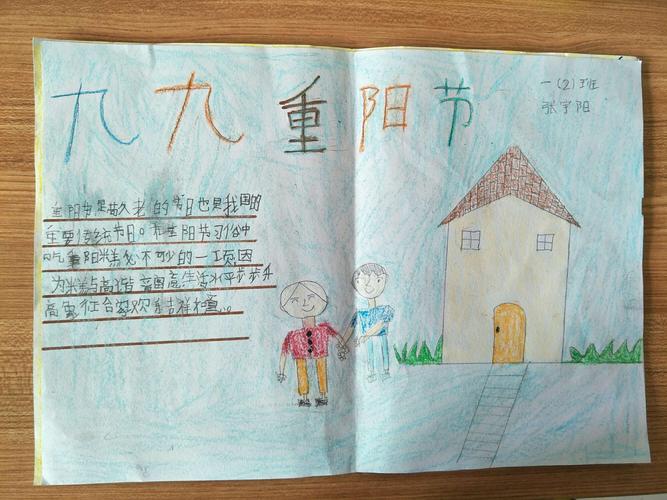 九九重阳节
一(2)班
张宇阳
重阳节是古久老的节日也是我国的
重要传统节日。在重阳节习俗中
吃重阳糕必不可少的一项因
为米糕与高谐音寓意生活水平步步升
高也符合喜欢吉祥